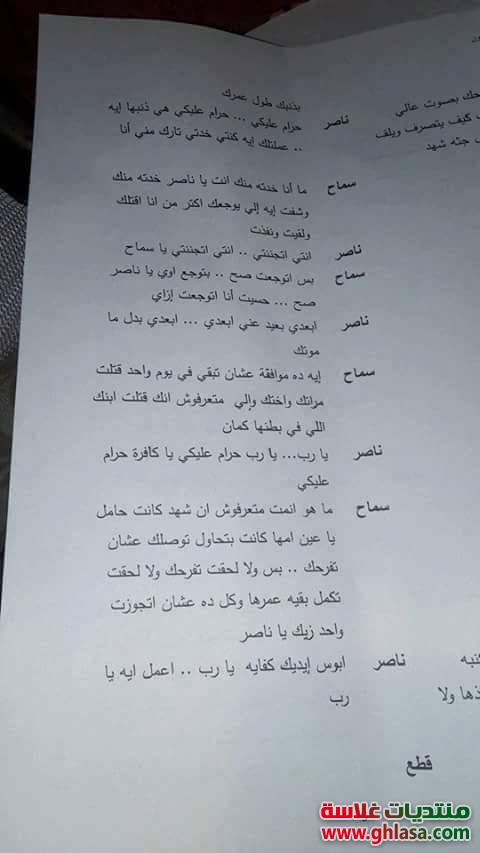 بذنبك طول عمرك
ناصر حرام عليكي ... حرام عليكي هي ذنبها إيه
.. عملتلك إيه كنتي خدتي تارك مني أنا
سماح ما أنا خدته منك انت يا ناصر خدته منك
وشفت إيه إلي يوجعك اكتر من انا اقتلك
ولقيت ونفذت
ناصر انتي اتجننتي .. انتي اتجننتي يا سماح
سماح بس اتوجعت صح .. بتوجع اوي يا ناصر
صح ... حسيت أنا اتوجعت إزاي
ناصر ابعدي بعيد عني ابعدي ... ابعدي بدل ما
موتك
سماح إيه ده موافقة عشان تبقي في يوم واحد قتلت
مراتك واختك وإلي متعرفوش انك قتلت ابنك
اللي في بطنها كمان
ناصر يا رب... يا رب حرام عليكي يا كافرة حرام
عليكي
سماح ما هو انمت متعرفوش ان شهد كانت حامل
يا عين امها كانت بتحاول توصلك عشان
تفرحك .. بس ولا لحقت تفرحك ولا لحقت
تكمل بقيه عمرها وكل ده عشان اتجوزت
واحد زيك يا ناصر
ناصر ابوس إيديك كفايه يا رب .. اعمل ايه يا
رب
قطع
حك بصوت عالي
كيف يتصرف ويلف
جثه شهد
كنبه
ذها ولا
منتديات غلاسة
www.ghlasa.com